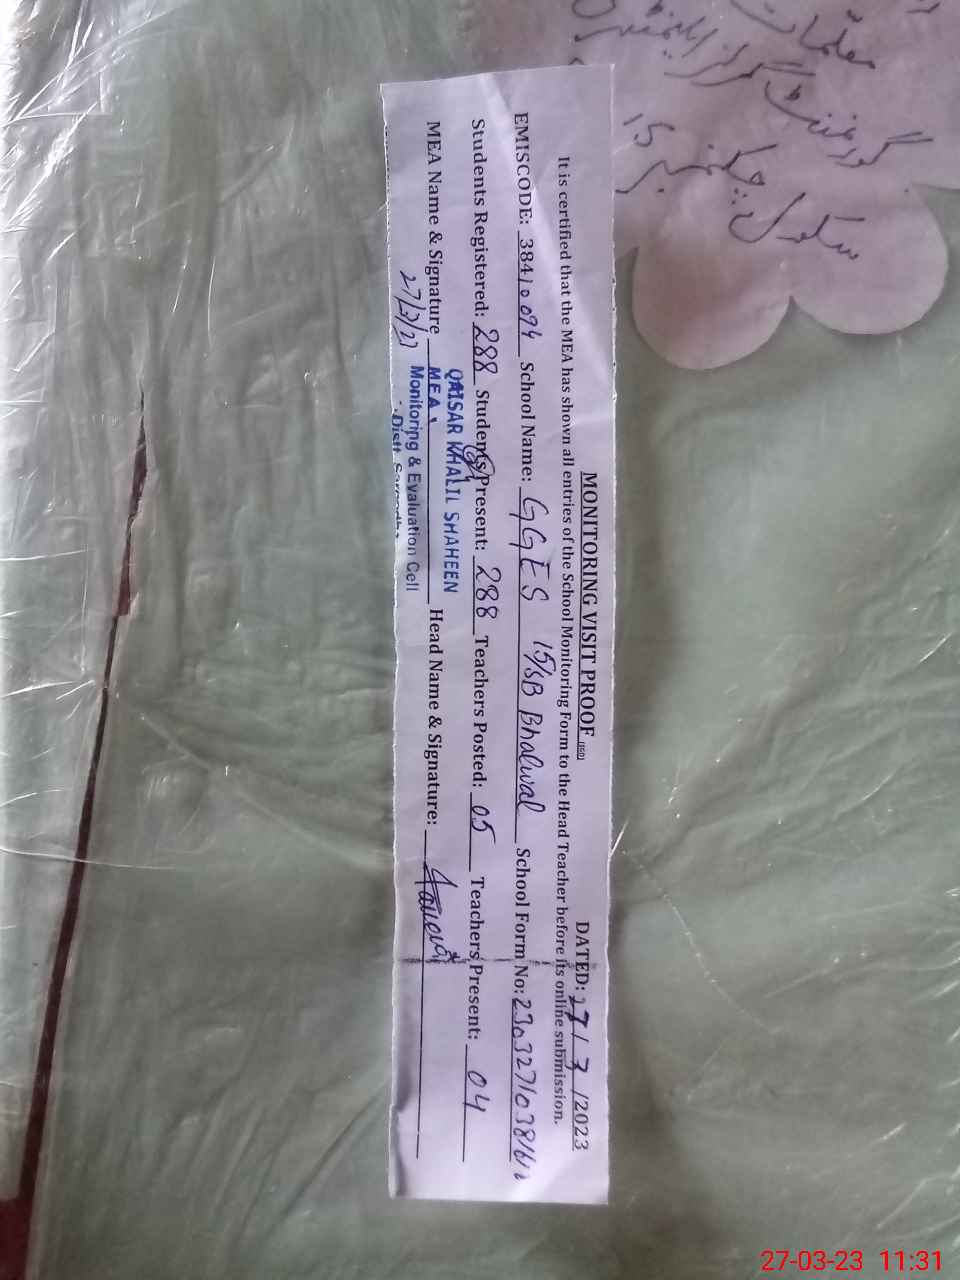 معلمات
گورنمنٹ گرلز ایلیمنٹری
سکول چک نمبر 15
MONITORING VISIT PROOF DATED: 27/3/2023
It is certified that the MEA has shown all entries of the School Monitoring Form to the Head Teacher before its online submission.
EMISCODE: 38410094 School Name: GGES 15/SB Bhalwal School Form No:
Students Registered: 288 Students Present: 288 Teachers Posted: 05 Teachers Present: 04
QAISAR KHALIL SHAHEEN
MEA Name & Signature MEA Head Name & Signature:
Monitoring & Evaluation Cell
Distt. Sargodha
27-03-23 11:31